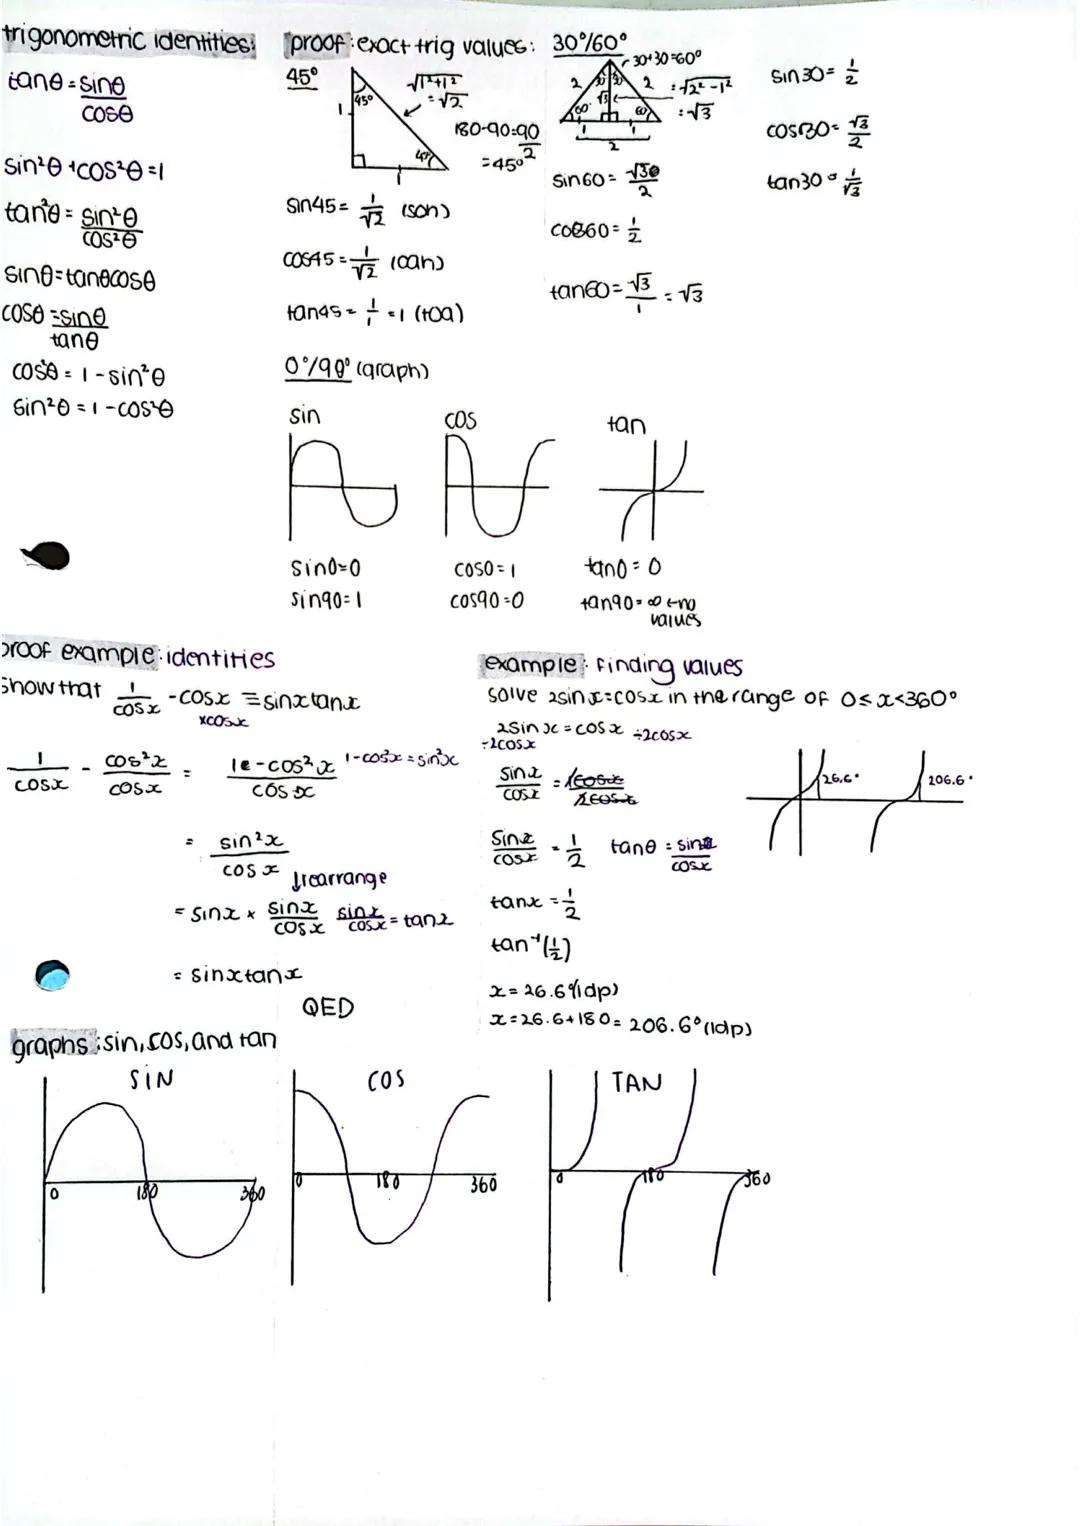 trigonometric identities:
tanθ = sinθ/cosθ
sin²θ + cos²θ = 1
tan²θ = sin²θ/cos²θ
sinθ = tanθcosθ
cosθ = sinθ/tanθ
cos²θ = 1 - sin²θ
sin²θ = 1 - cos²θ
proof: exact trig values:
45°
45°
1
√1²+1²
= √2
45°
1
180-90=90/2
=45°
sin45 = 1/√2 (soh)
cos45 = 1/√2 (cah)
tan45 = 1/1 = 1 (toa)
30°/60°
30+30=60°
2
30
30
2
: √2²-1²
: √3
√3
60
60
1
1
2
sin60 = √3/2
cos60 = 1/2
tan60 = √3/1 = √3
sin30 = 1/2
cos30 = √3/2
tan30 = 1/√3
0°/90° (graph)
sin
cos
tan
sin0=0
sin90=1
cos0=1
cos90=0
tan0=0
tan90=∞ ←no
values
proof example: identities
show that 1/cosx - cosx ≡ sinxtanx
xcosx
1/cosx - cos²x/cosx = 1-cos²x/cosx 1-cos²x = sin²x
= sin²x/cosx
↓rearrange
= sinx × sinx/cosx sinx/cosx = tanx
= sinxtanx
QED
example: finding values
solve 2sinx=cosx in the range of 0≤x<360°
2sinx = cosx ÷2cosx
÷2cosx
sinx/cosx = 1cosx/2cosx
sinx/cosx = 1/2 tanθ = sinθ/cosx
tanx = 1/2
tan⁻¹(1/2)
x = 26.6°(1dp)
x=26.6+180= 206.6°(1dp)
26.6°
206.6°
graphs: sin, cos, and tan
SIN
0
180
360
COS
0
180
360
TAN
0
180
360